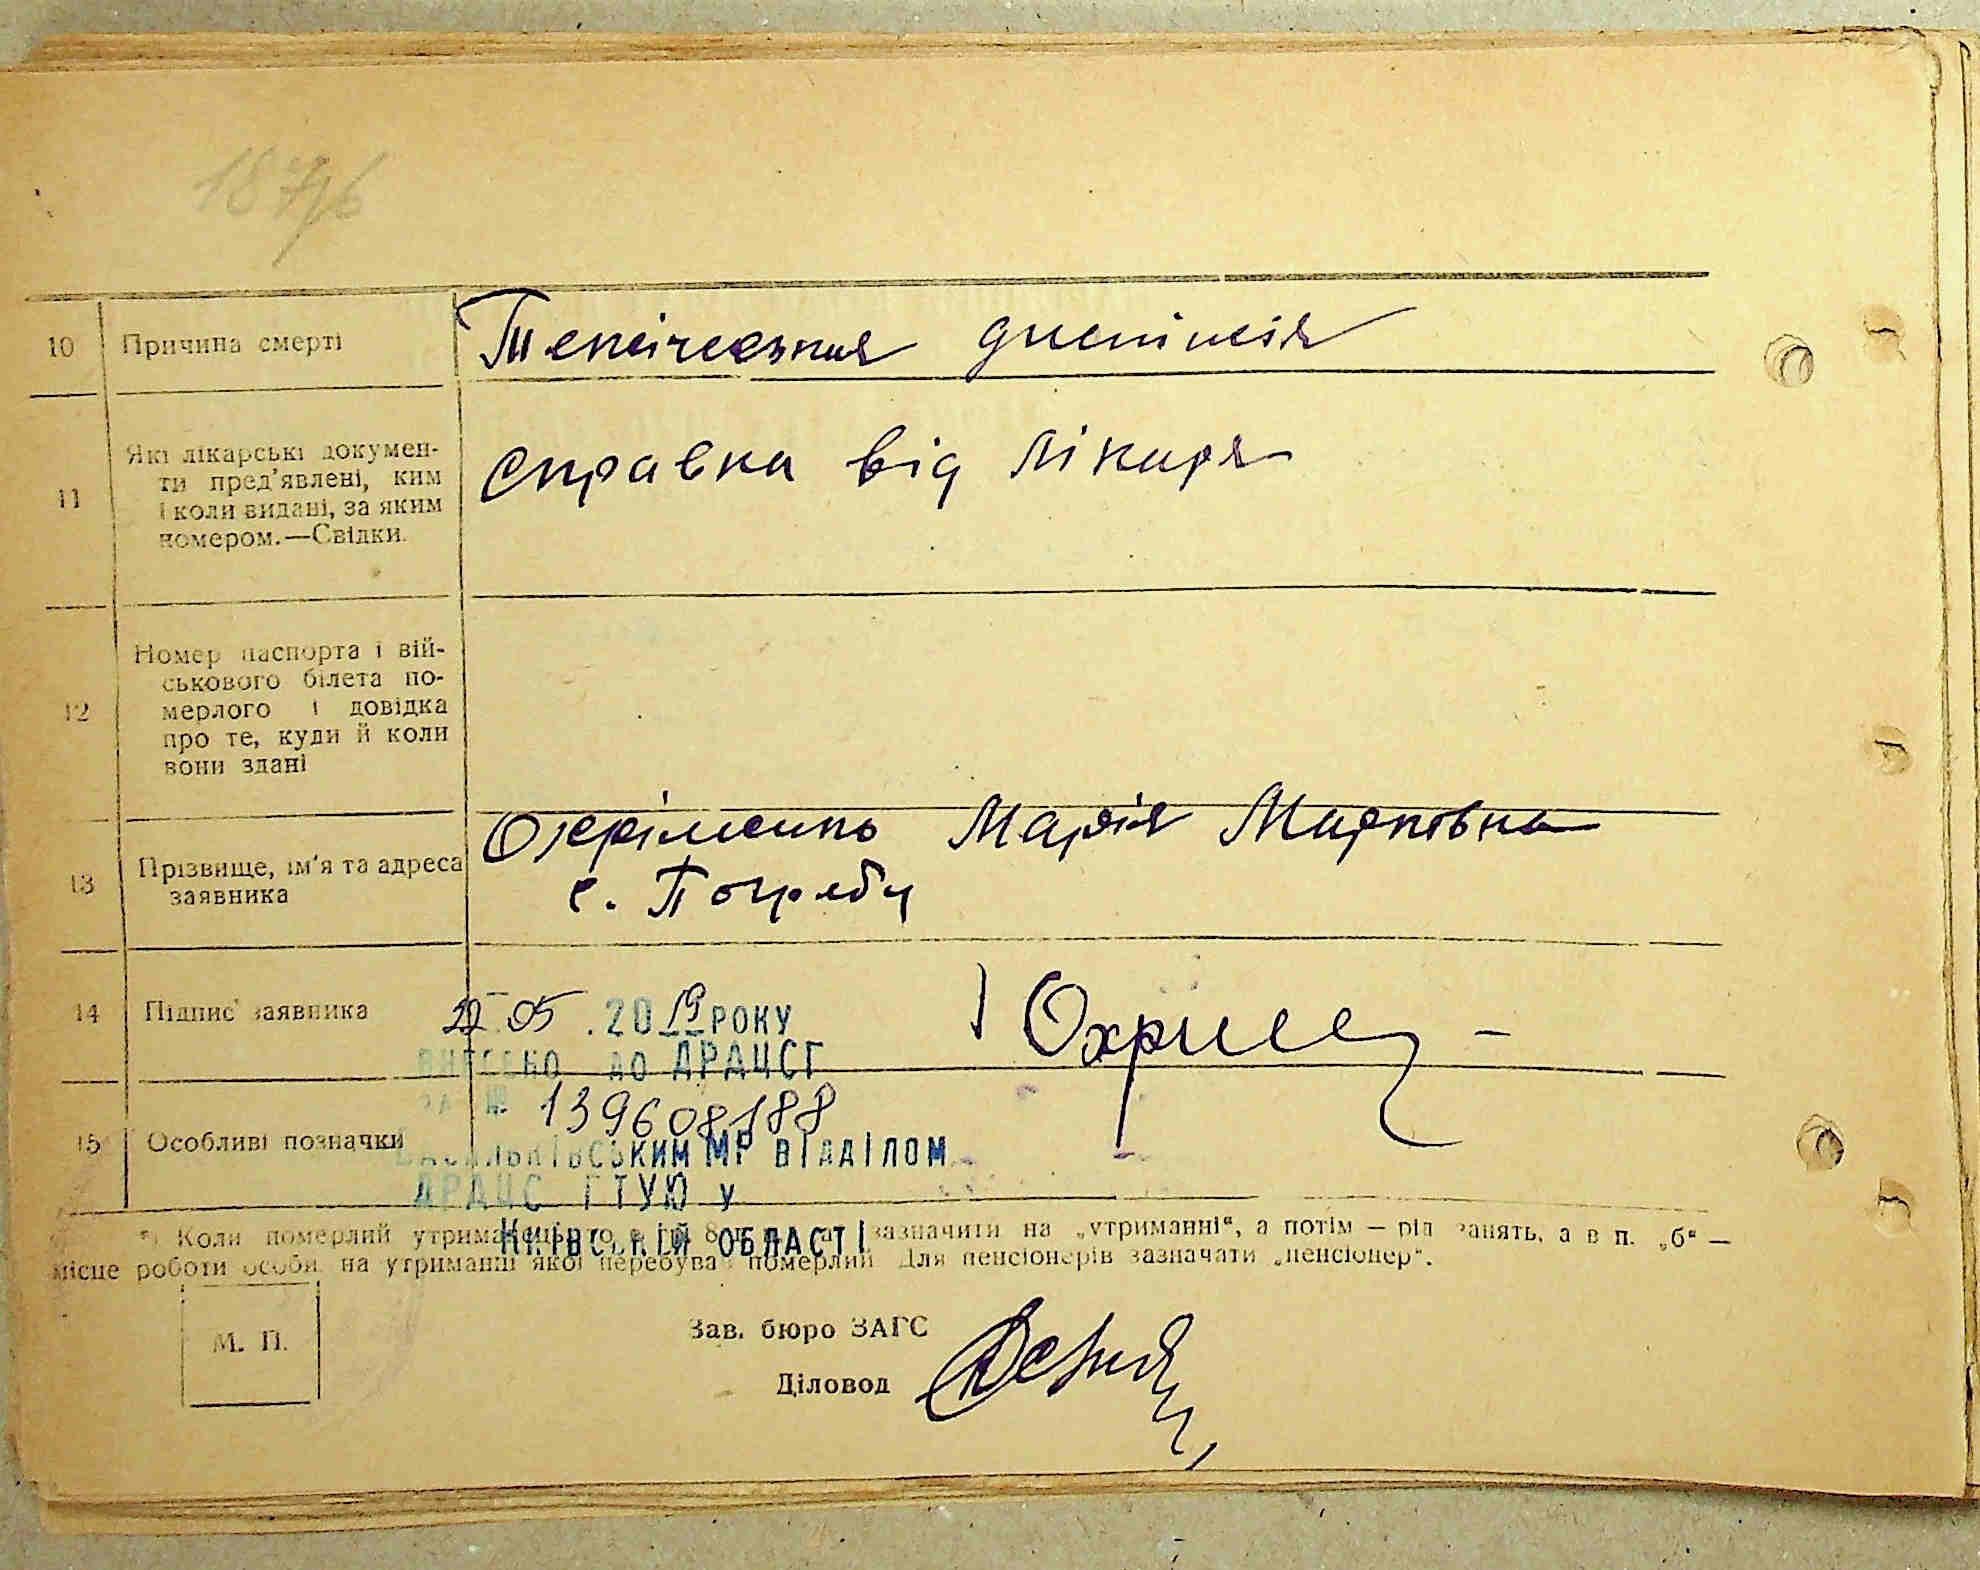 187/6
10 Причина смерті
Токсическая диспепсія
11 Які лікарські докумен-
ти пред'явлені, ким
і коли видані, за яким
номером.—Свідки.
справка від лікаря
12 Номер паспорта і вій-
ськового білета по-
мерлого і довідка
про те, куди й коли
вони здані
13 Прізвище, ім'я та адреса
заявника
Охріменко Марія Марковна
с. Погреби
14 Підпис заявника
22 05 .2019 РОКУ
ВНЕСЕНО ДО ДРАЦСГ
ЗА № 139608188
15 Особливі позначки
ВАСИЛЬКІВСЬКИМ МР ВІДДІЛОМ
ДРАЦС ГТУЮ у
КИЇВСЬКІЙ ОБЛАСТІ
*) Коли померлий утриманець, то в гр. 8 п. „а“ зазначити на „утриманні“, а потім — рід занять, а в п. „б“ —
місце роботи особи, на утриманні якої перебував померлий Для пенсіонерів зазначати „пенсіонер“.
М. П.
Зав. бюро ЗАГС
Діловод